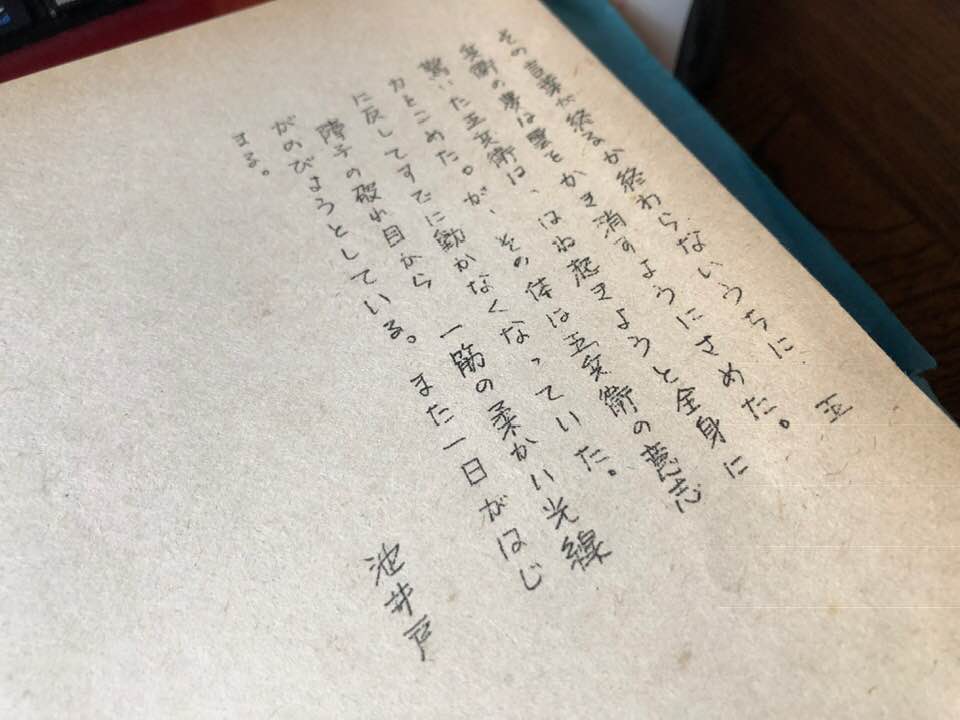 その言葉が終るか終わらないうちに 五
兵衛の夢はをかき消すようにさめた。
驚いた五兵衛は、はね起きようと全身に
力をこめた。が、その体は五兵衛の意志
に反してすでに動かなくなっていた。
障子の破れ目から 一筋の柔かい光線
がのびようとしている。また一日がはじ
まる。
池井戸